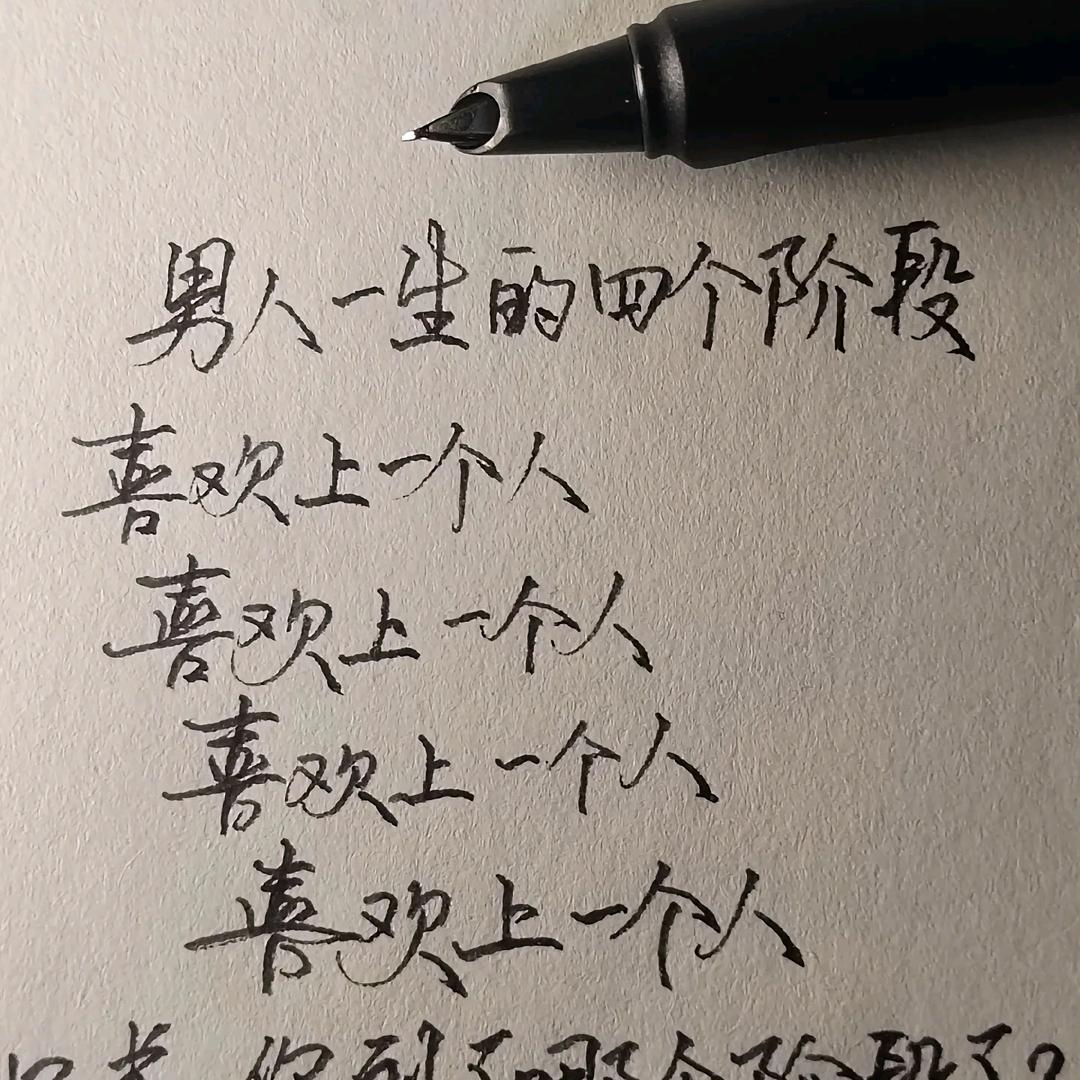 男人一生的四个阶段
喜欢上一个人
喜欢上一个人
喜欢上一个人
喜欢上一个人
你到了哪个阶段了?